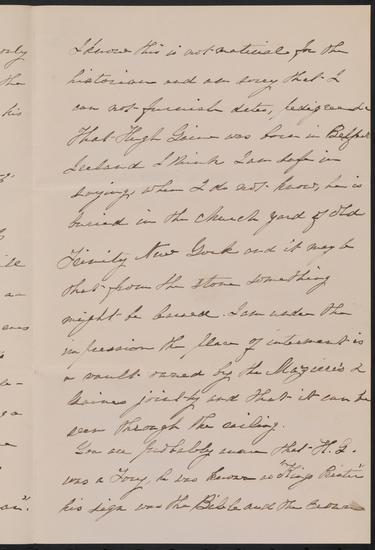 only
the
his
I know this is not material for the
historian and am sorry that I
can not furnish dates, pedigree &c
That Hugh Gaine was born in Belfast
Ireland I think I am safe in
saying, when I do not know, he is
buried in the church yard of Old
Trinity New York and it may be
that from the stone something
might be learned. I am under the
impression the place of interment is
a vault owned by the Maziere's &
Gaines jointly and that it can be
seen through the ceiling.
You are probably aware that H. G.
was a Tory, he was known as "Kings Printer"
his sign was the Bible and the Crown